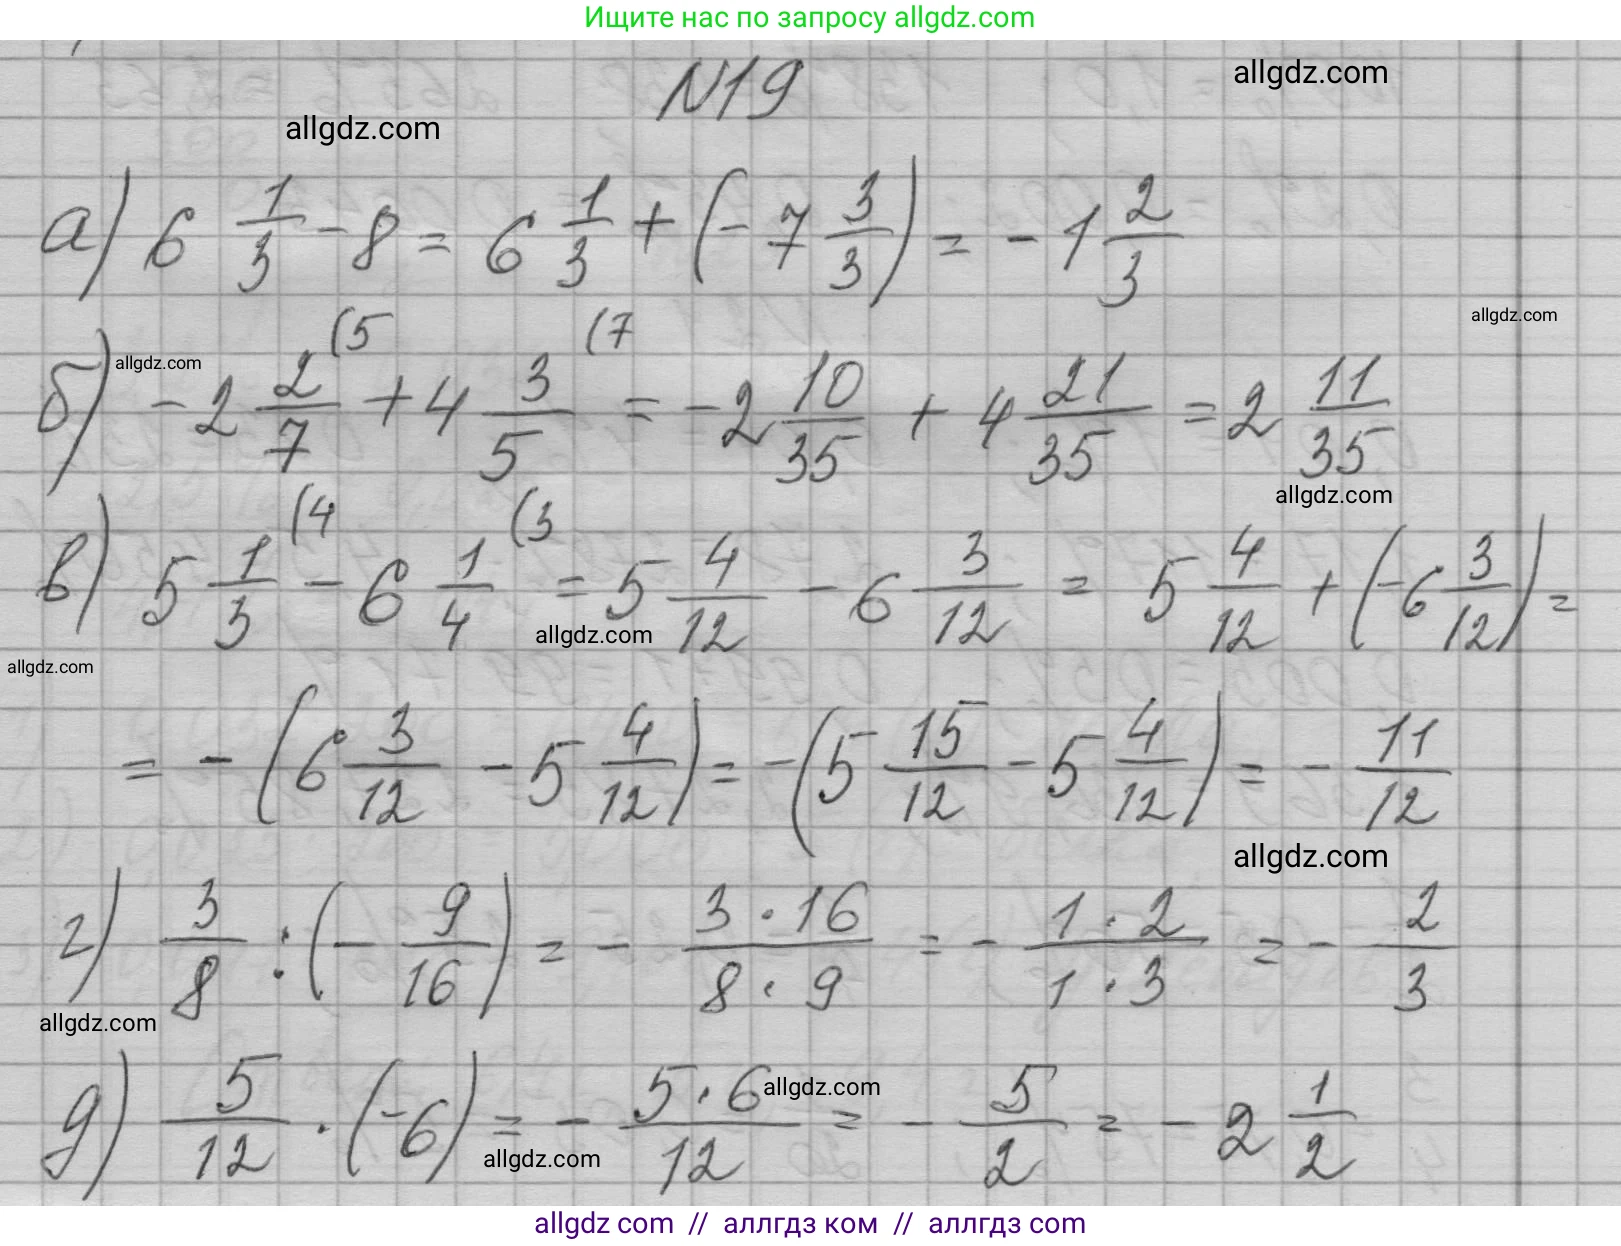 Ищите нас по запросу allgdz.com
№19
allgdz.com
allgdz.com
а) 6 1/3 - 8 = 6 1/3 + (- 7 3/3) = - 1 2/3
allgdz.com
б) - 2 2/7 (5 + 4 3/5 (7 = - 2 10/35 + 4 21/35 = 2 11/35
allgdz.com
allgdz.com
в) 5 1/3 (4 - 6 1/4 (3 = 5 4/12 - 6 3/12 = 5 4/12 + (- 6 3/12) =
allgdz.com
allgdz.com
= - (6 3/12 - 5 4/12) = - (5 15/12 - 5 4/12) = - 11/12
allgdz.com
г) 3/8 : (- 9/16) = - 3 · 16/8 · 9 = - 1 · 2/1 · 3 = - 2/3
allgdz.com
д) 5/12 · (-6) = - 5 · 6/12 = - 5/2 = - 2 1/2
allgdz.com
allgdz.com
allgdz com // аллгдз ком // аллгдз com